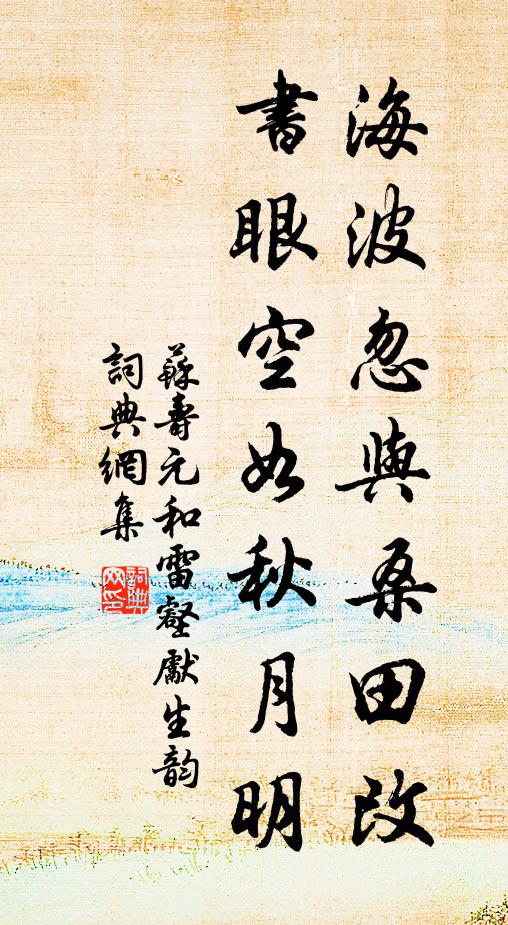 海波忽與桑田改
書眼空如秋月明
蘇壽元和雷壑獻生韵
詞典網集
詞典